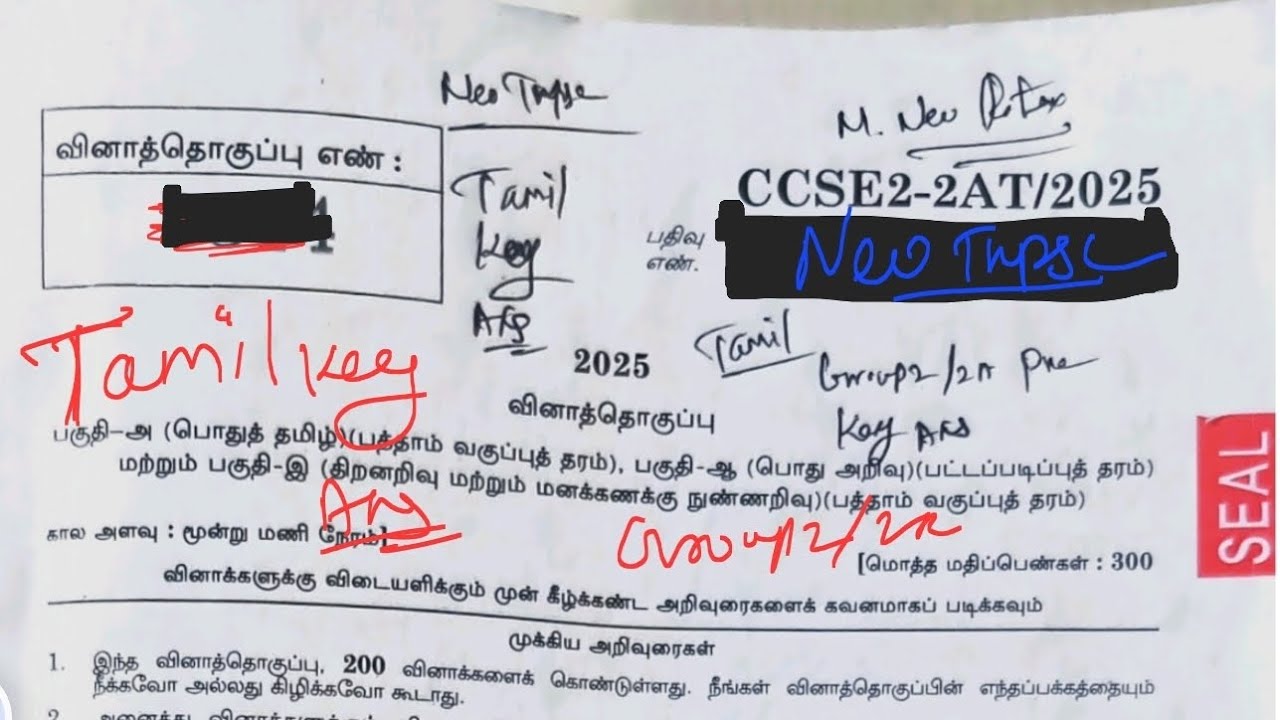 Neo Tnpsc
M. Neo
வினாத்தொகுப்பு எண் :
Tamil
Key
Ans
CCSE2-2AT/2025
பதிவு
எண்.
Neo Tnpsc
Tamil Key
Ans
2025
Tamil
Group2/2A Pre
Key Ans
வினாத்தொகுப்பு
பகுதி-அ (பொதுத் தமிழ்)(பத்தாம் வகுப்புத் தரம்), பகுதி-ஆ (பொது அறிவு)(பட்டப்படிப்புத் தரம்)
மற்றும் பகுதி-இ (திறனறிவு மற்றும் மனக்கணக்கு நுண்ணறிவு)(பத்தாம் வகுப்புத் தரம்)
கால அளவு : மூன்று மணி நேரம்]
Group2/2A
[மொத்த மதிப்பெண்கள் : 300
வினாக்களுக்கு விடையளிக்கும் முன் கீழ்க்கண்ட அறிவுரைகளைக் கவனமாகப் படிக்கவும்
முக்கிய அறிவுரைகள்
1. இந்த வினாத்தொகுப்பு, 200 வினாக்களைக் கொண்டுள்ளது. நீங்கள் வினாத்தொகுப்பின் எந்தப்பக்கத்தையும்
நீக்கவோ அல்லது கிழிக்கவோ கூடாது.
2.
SEAL